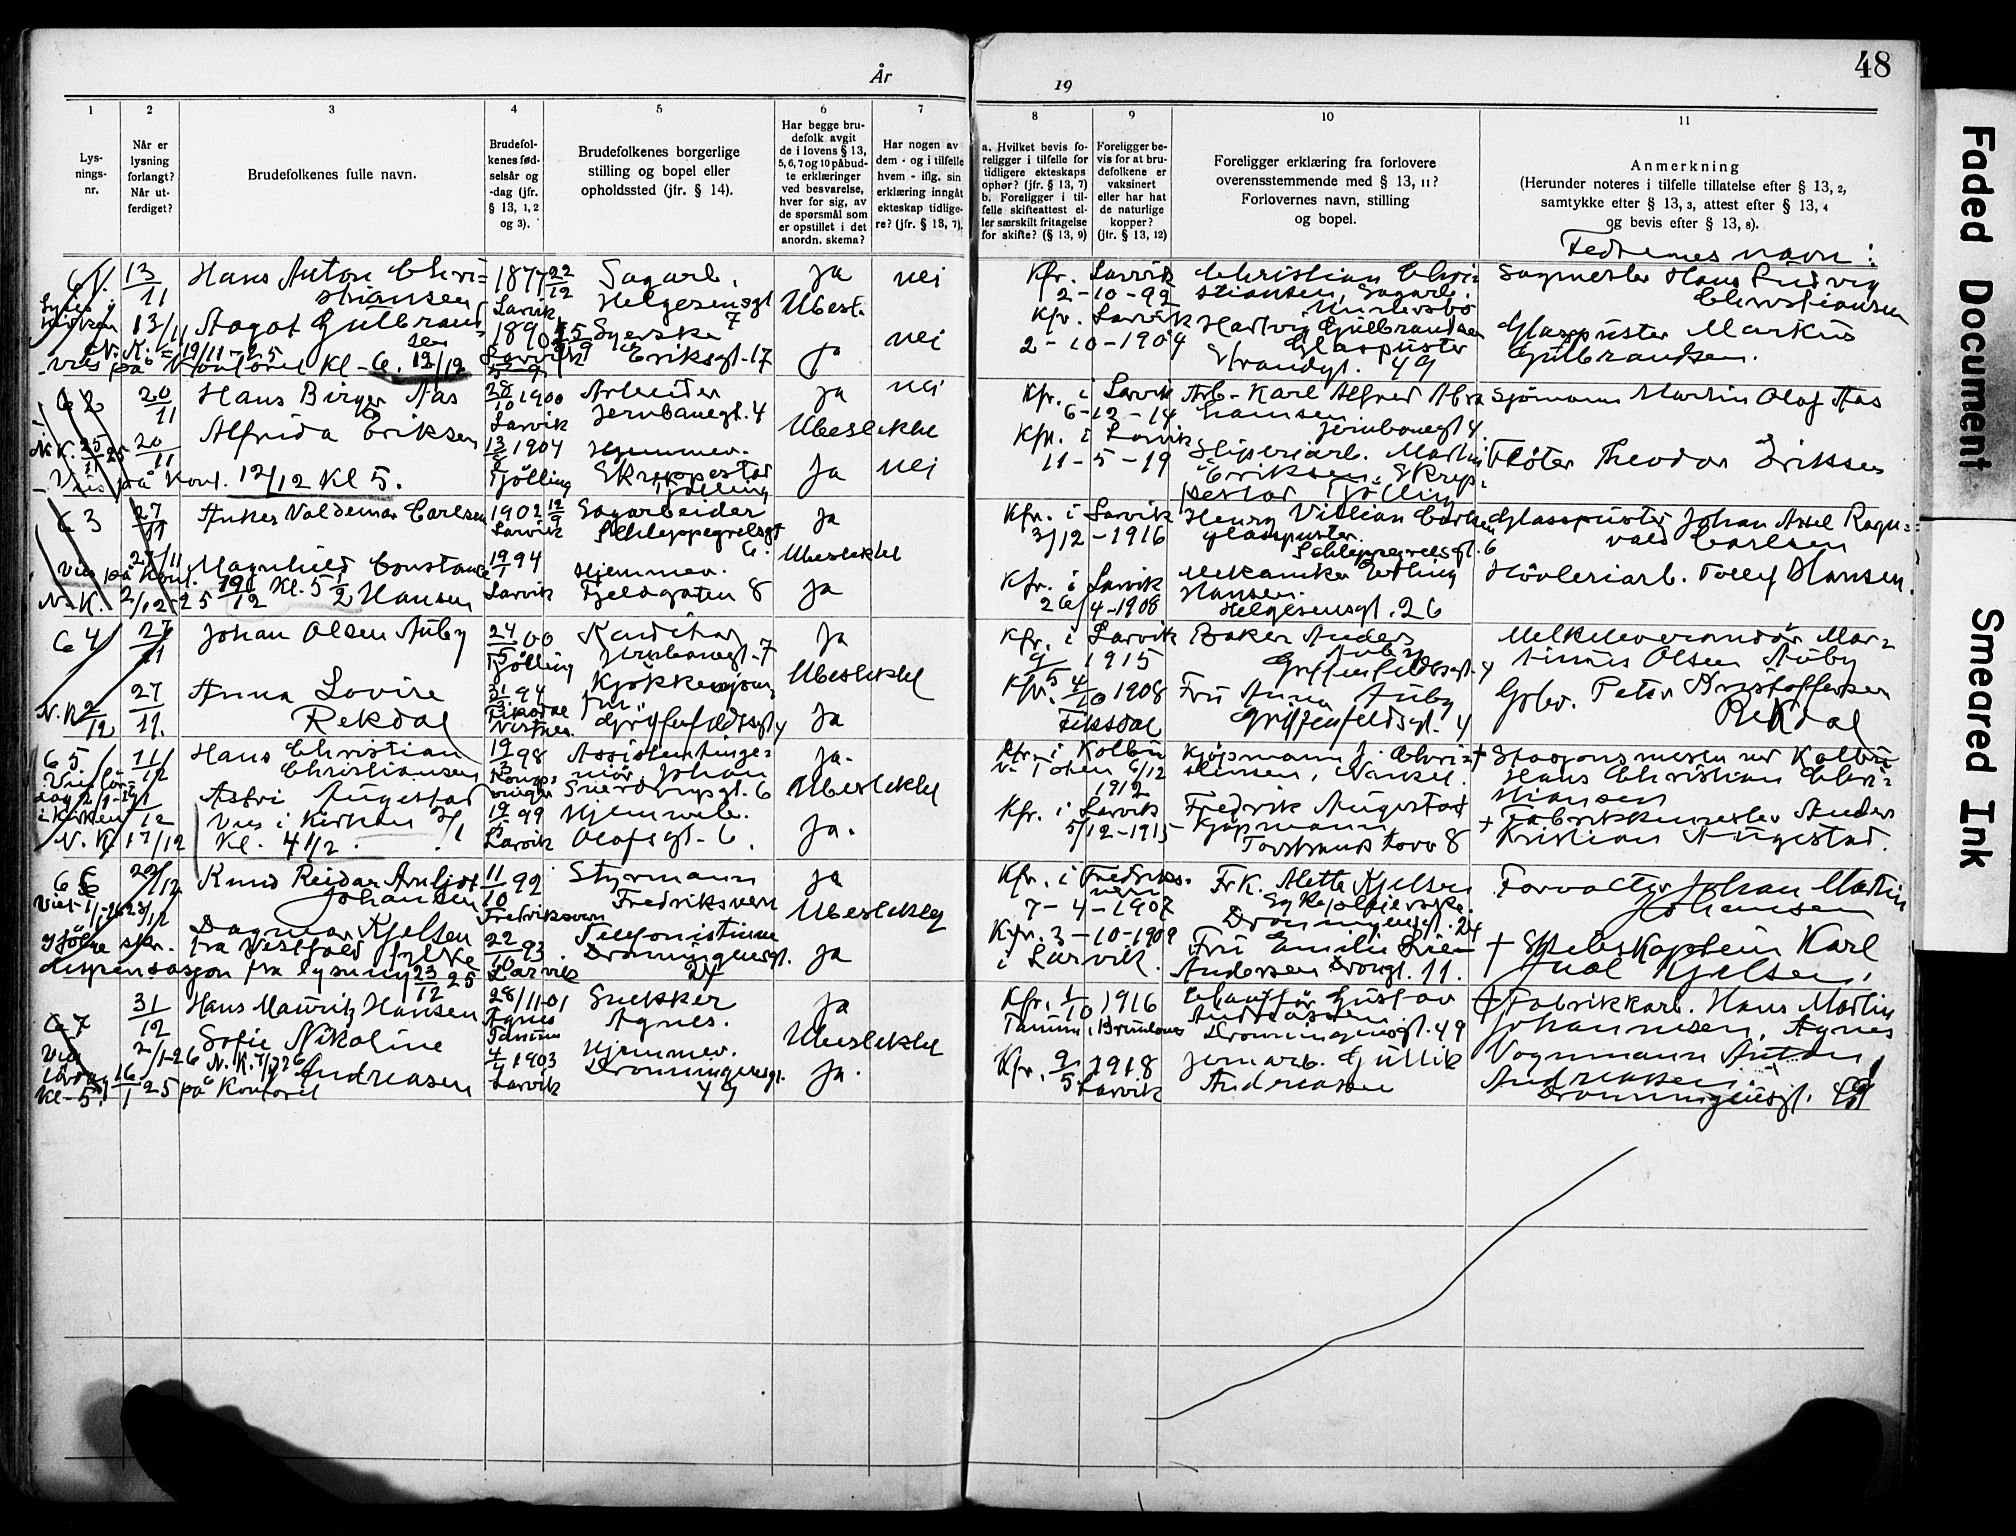 År
19
48
1
2
3
4
5
6
7
8
9
10
11
Lys-
nings-
nr.
Når er
lysning
forlangt?
Når ut-
ferdiget?
Brudefolkenes fulle navn.
Brudefol-
kenes fød-
selsår og
-dag (jfr.
§ 13, 1, 2
og 3).
Brudefolkenes borgerlige
stilling og bopel eller
opholdssted (jfr. § 14).
Har begge bru-
defolk avgit
de i lovens § 13,
5, 6, 7 og 10 påbud-
te erklæringer
ved besvarelse,
hver for sig, av
de spørsmål som
er opstillet i det
anordn. skema?
Har nogen av
dem - og i tilfelle
hvem - iflg. sin
erklæring inngåt
ekteskap tidlige-
re? (jfr. § 13, 7).
a. Hvilket bevis fo-
religger i tilfelle for
tidligere ekteskaps
ophør? (jfr. § 13, 7)
b. Foreligger i til-
felle skifteattest el-
ler særskilt fritagelse
for skifte? (§ 13, 9)
Foreligger be-
vis for at bru-
defolkene er
vaksinert
eller har hat
de naturlige
kopper?
(jfr. § 13, 12)
Foreligger erklæring fra forlovere
overensstemmende med § 13, 11?
Forlovernes navn, stilling
og bopel.
Anmerkning
(Herunder noteres i tilfelle tillatelse efter § 13, 2,
samtykke efter § 13, 3, attest efter § 13, 4
og bevis efter § 13, 8).
Fedrenes navn:
61. 13/11 Hans Anton Chri=
stiansen
1877 22/12 Larvik
Sagarb.
Helgesensgt 7
ja
Ubesl.
nei
Kfr. Larvik
2-10-92
Christian Chri=
stiansen, Sagarb.
Sagmester Hans Ludvig
Christiansen
13/11 Aagot Gulbrand
sen
1890 Larvik
Syerske
Eriksgt. 17
ja
nei
Kfr. Larvik
2-10-1904
Hartvig Gulbrandsen
Glaspuster
Strandgt. 49
Glaspuster Markus
Gulbrandsen.
N.K. 19/11-25
Vies på Kontoret Kl-6. 12/12
62 20/11 Hans Birger Aas
28/10 1900
Larvik
Arbeider
Jernbanegt. 4
ja
Ubeslektet
nei
Kfr. i Larvik
6-12-14
Arb. Karl Alfred Abra
hamsen.
Jernbanegt 4.
Sjømann Martin Olaf Aas
N.K. 25/11 25 20/11 Alfrida Eriksen
13/8 1904
Tjølling
Hjemmev.
Skreppestad
Tjølling
ja
nei
Kfr. i Larvik
11-5-19
Sliperiarb. Martin
Eriksen. Skrep-
pestad Tjølling
Fløter Theodor Eriksen
Vies på Kont. 12/12 Kl 5.
63 27/11 Anker Valdemar Carlsen
1902 12/9
Larvik
Sagarbeider
Schleppegrelsgt
6.
ja
Ubeslektet
Kfr. i Larvik
3/12-1916
Henry Villian Carlsen
glaspuster.
Schleppegrelsgt. 6
Glasspuster Johan Axel Ragn=
vald Carlsen
27/11 Magnhild Constance
Hansen
19/1 94
Larvik
Hjemmev.
Fjeldgaten 8
ja
Kfr. i Larvik
26/4-1908
Mekaniker Erling
Hansen.
Helgesensgt. 26
Høvleriarb. Tollef Hansen.
Vies på Kont. 19/12 Kl. 5 1/2
N.K. 2/12-25
64 27/11 Johan Olsen Auby
24/5 00
Tjølling
Konditor
Jernbanegt. 7
ja
Ubeslektet
Kfr. i Larvik
9/5 1915
Baker Anders
Auby
Griffenfeldsgt. 4
Melkeleverandør Mar=
tinius Olsen Auby
N.K. 2/12 27/11. Anna Lovise
Rekdal
31/3. 94
ja
Kfr. 4/10 1908
Fiksdal
Fru Anna Auby
Griffenfeldsgt. 4
Gbr. Peter Kristoffersen
Rekdal
65 11/12 Hans Christian
Christiansen
19/3 98
Kongs-
vinger
Assistentinge=
niør, Johan
Sverdrupsgt. 6
ja.
Ubeslektet
Kfr. i Kolbu
v. Toten 6/12
1912
Kjøpmann J. Chri=
stensen, Nanset.
+ Stasjonsmester ved Kolbu
Hans Christian Chri=
stiansen
Astri Augestad
19/1 99
Larvik
Hjemmev.
Olafsgt. 6.
ja.
Kfr. i Larvik
5/12-1915
Fredrik Augestad
Kjøpmann
Torstrands torv 8
+ Fabrikkmester Anders
Kristian Augestad.
Vies i kirken 2/1
Kl. 4 1/2.
N.K. 17/12
66 22/12 Knud Reidar Arnljot
Johansen
11/10 92
Fredriksvern
Styrmann
Fredriksvern
ja
Ubeslektet
Kfr. i Fredriks-
vern
7-4-1907
Frk. Alette Kjelsen
Sykepleierske.
Dronningensgt. 24
Forvalter Johan Martin
Johansen
23/12 Dagmar Kjelsen
22/10 93
Larvik
Telefonistinne
Dronningensgt.
24
ja
Kfr. 3-10-1909
i Larvik.
Fru Emilie
Andersen Drongt. 11.
+ Skibskaptein Karl
Juul Kjelsen,
Ifølge skr. fra Vestfold fylke
dispensasjon fra lysning 23/12 25
67 31/12 Hans Mauritz Hansen
28/11 01
Agnes
Tanum
Snekker
Agnes.
ja
Ubeslektet
Kfr. 1/10 1916
Tanum, Brunlanes
Chauffør Gustav
Andreasen
Dronningensgt. 49
Fabrikkarb. Hans Martin
Johannesen, Agnes
2/1-26 Sofie Nikoline
Andreasen
4/4 1903
Larvik
Hjemmev.
Dronningensgt.
49
ja.
Kfr. 9/5 1918
Larvik
Jernarb. Gullik
Andreasen
Vognmann Anton
Andreasen.
Dronningensgt. 49
N.K. 7/1 26
Vies lørdag 16/1 25 på Kontoret
Kl-5.
Faded Document
Smeared Ink